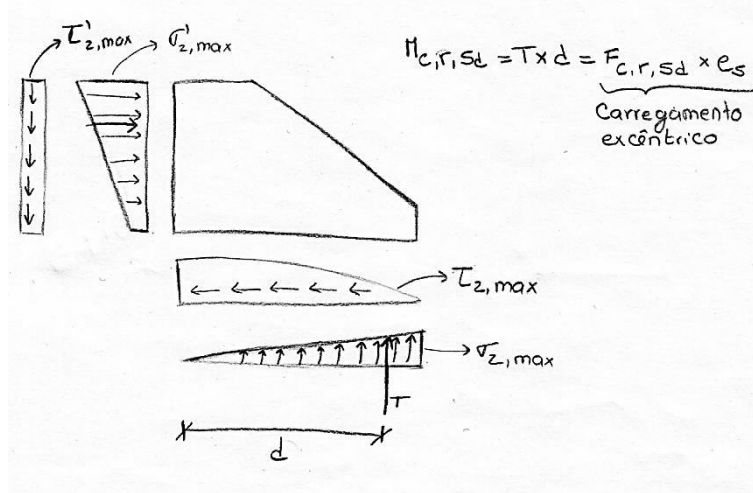 τ'2,max
σ'2,max
Mc,r,Sd = T x d = Fc,r,Sd x es
Carregamento
excêntrico
τ2,max
σ2,max
T
d